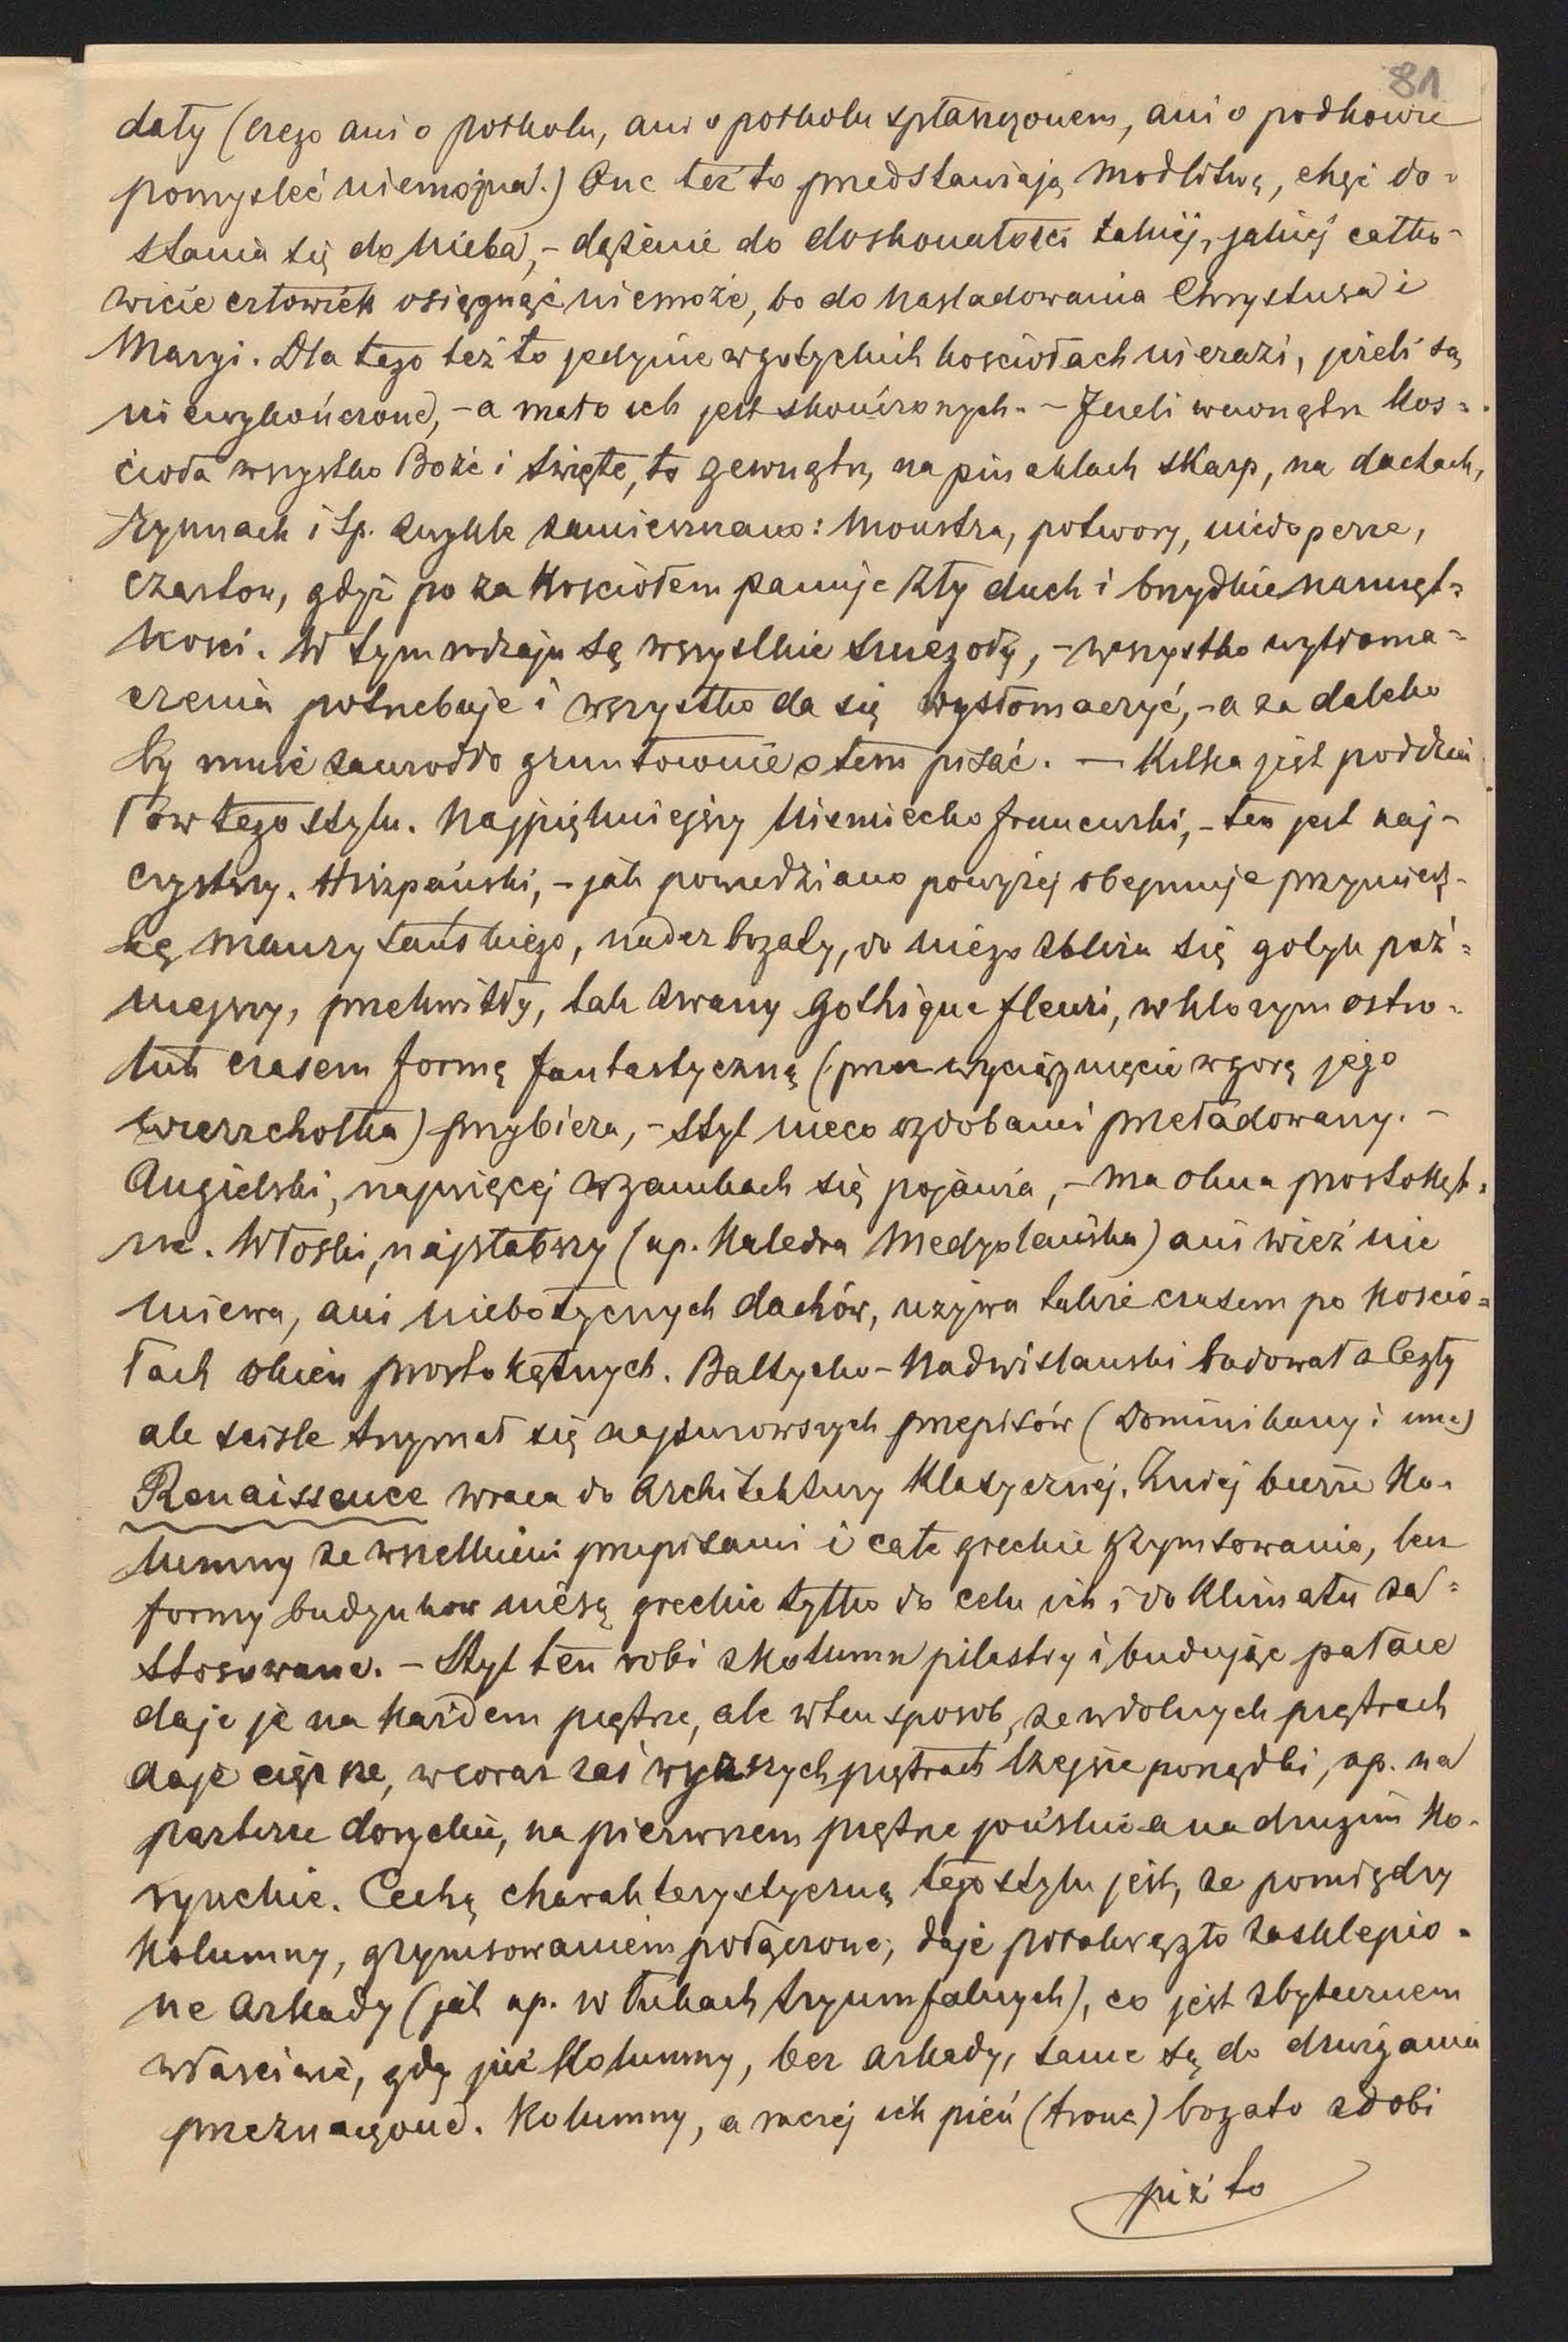 81
dały (czego ani o półkolu, ani o półkolu spłaszczonem, ani o podkowie
pomyśleć niemożna.) One też to przedstawiają modlitwę, chęć do=
stania się do Nieba, – dążenie do doskonałości takiej, jakiej całko-
wicie człowiek osiągnąć niemoże, bo do Nasladowania Chrystusa i
Maryi. Dla tego też to jedynie w gotyckich kościołach nierazi, jeżeli są
niewykończone, – a mało ich jest skończonych. – Jeżeli wewnątrz Koś=
cioła wszystko Boże i święte, to zewnątrz, na pinaklach skarp, na dachach,
rzynnach i t.p. zwykle zamieszczano: Monstra, potwory, niedoperze,
czartow, gdyż po za Kościołem panuje zły duch i brzydkie namięt=
ności. W tym rodzaju są wszystkie szczegoły, – wszystko wytłoma=
czenia potrzebuje i wszystko da się wystomaczyć, – a za daleko
by mnie zawrodło gruntownie o tem pisać. – Kilka jest poddzia
łów tego stylu. Najpiękniejszy Niemiecko francuski, – ten jest naj-
czystszy. Hiszpański, – jak powiedziano powyżej obejmuje przymiesz-
kę Maurytańskiego, nader bogaty, do niego zbliża się gotyk póź=
niejszy, przekwitły, tak zwany Gothique fleuri, w którym ostro=
łuk czasem formę fantastyczną (przez wyciągnięcie w gorę jego
wierzchołka) przybiera, – styl nieco ozdobami przeładowany. –
Angielski, najwięcej w zamkach się pojawia, – ma okna prostokąt=
ne. Włoski, najsłabszy (np. Katedra Medyolańska) ani wież nie
miewa, ani niebotycznych dachów, używa także czasem po Kościo=
łach okien prostokątnych. Baltycko-Nadwislanski budował z Cegły
ale scisle trzymał się najsurowszych przepisów (Dominikany i inne)
Renaissence wraca do Architektury Klasycznej. Z niej bierze Ko=
lumny ze wszelkiemi przepisami i całe greckie gzymsowanie, lecz
formy budynkow niesą greckie tylko do celu ich i do Klimatu za=
stosowane. – Styl ten robi z Kolumn pilastry i budując pałace
daje je na Każdem piętrze, ale w ten sposob, ze w dolnych piętrach
daje cięższe, w coraz zaś wyższych piętrach lżejsze porządki, np. na
parterze doryckie, na pierwszem piętrze jońskie a na drugim Ko=
rynckie. Cechą charakterystyczną tego stylu jest, ze pomiędzy
Kolumny, gzymsowaniem połączone, daje półokrągło zasklepio=
ne Arkady (jak np. w Łukach tryumfalnych), co jest zbytecznem
właściwie, gdy już Kolumny, bez Arkady, same są do dzwigania
przeznaczone. Kolumny, a raczej ich pień (tronc) bogato zdobi
niż to